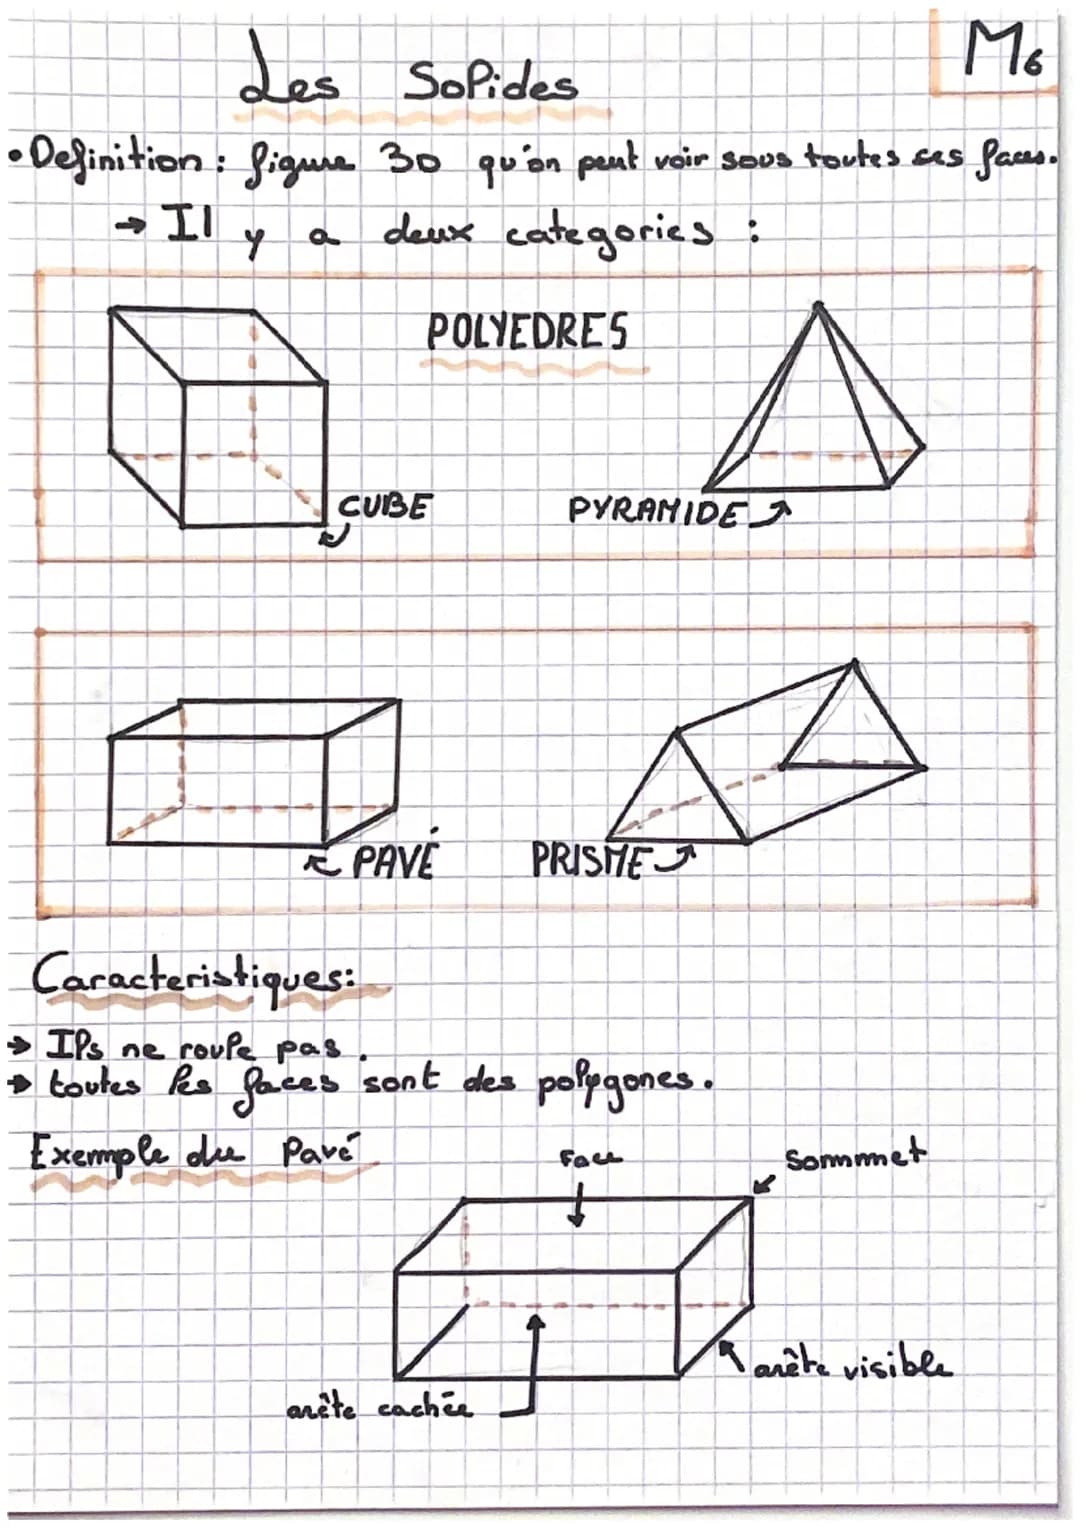 M6
Les Solides
• Definition : figure 3D qu'on peut voir sous toutes ses faces.
→ Il y a deux categories :
POLYEDRES
CUBE
PYRAMIDE
PAVÉ
PRISME
Caracteristiques:
→ Ils ne roule pas.
→ toutes les faces sont des polygones.
Exemple du Pavé
Face
Sommmet
arête visible
arête cachée